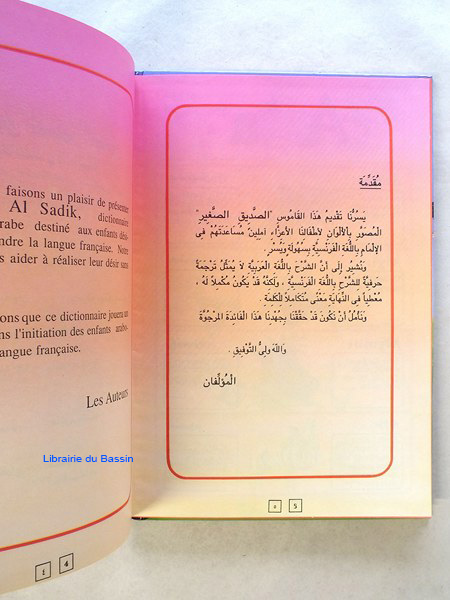 faisons un plaisir de présenter
Al Sadik, dictionnaire
arabe destiné aux enfants dési-
ndre la langue française. Notre
s aider à réaliser leur désir sans
ons que ce dictionnaire jouera un
ns l'initiation des enfants arabo-
langue française.
Les Auteurs
٤ 4
مُقَدِّمَة
يَسُرُّنَا تَقْدِيمُ هَذَا القَامُوسِ "الصَّدِيقِ الصَّغِيرِ"
المُصَوَّرِ بِالأَلْوَانِ لأَطْفَالِنَا الأَعِزَّاءِ، آمِلِينَ مُسَاعَدَتَهُمْ فِي
الإِلْمَامِ بِاللُّغَةِ الفَرَنْسِيَّةِ بِسُهُولَةٍ وَيُسْرٍ.
وَنُشِيرُ إِلَى أَنَّ الشَّرْحَ بِاللُّغَةِ العَرَبِيَّةِ لاَ يُمَثِّلُ تَرْجَمَةً
حَرْفِيَّةً لِلشَّرْحِ بِاللُّغَةِ الفَرَنْسِيَّةِ، وَلَكِنَّهُ قَدْ يَكُونُ مُكَمِّلاً لَهُ،
مُعْطِيًا فِي النِّهَايَةِ مَعْنًى مُتَكَامِلاً لِلْكَلِمَةِ.
وَنَأْمُلُ أَنْ نَكُونَ قَدْ حَقَّقْنَا بِجُهْدِنَا هَذَا الفَائِدَةَ المَرْجُوَّةَ
وَاللَّهُ وَلِيُّ التَّوْفِيقِ.
المُؤَلِّفَان
٥ 5
Librairie du Bassin